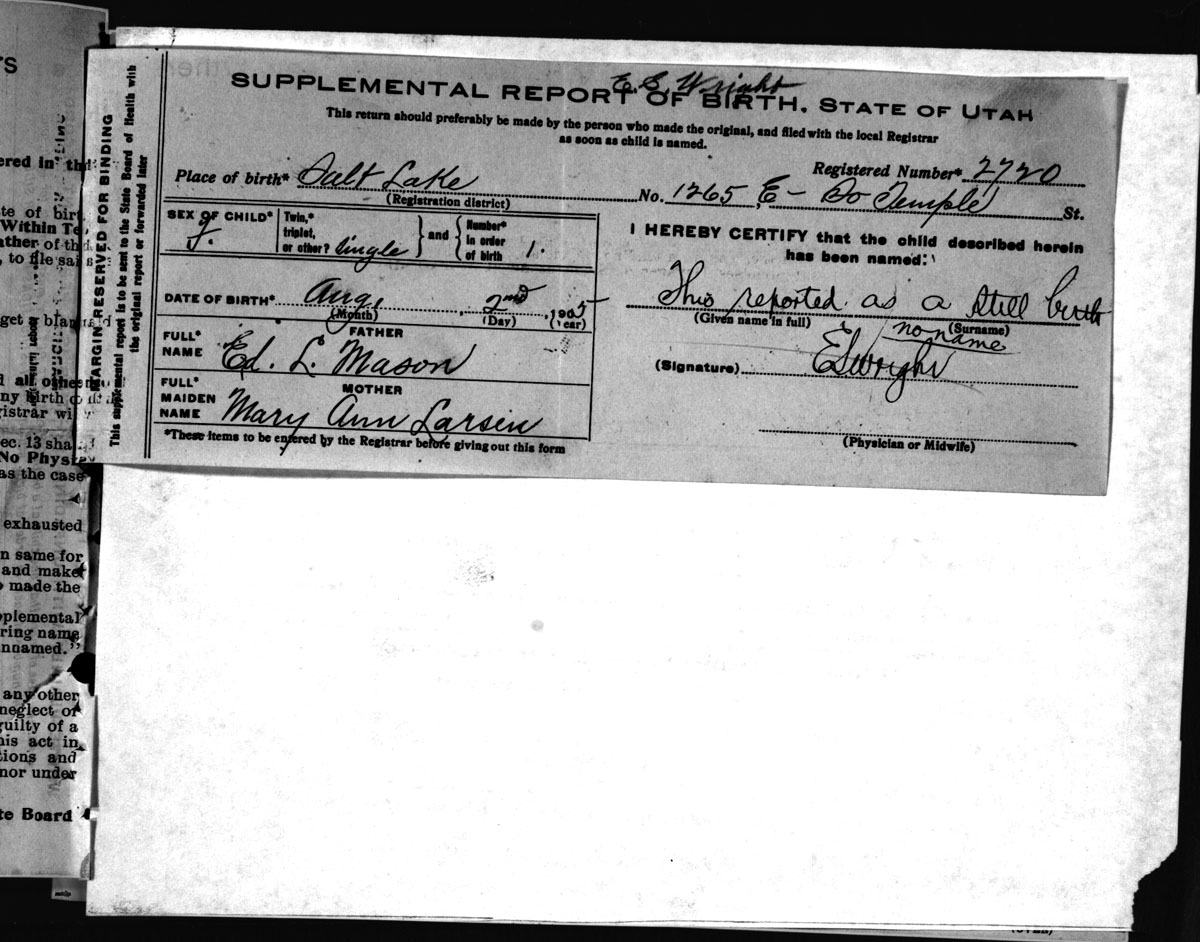 E. S. Wright
SUPPLEMENTAL REPORT OF BIRTH, STATE OF UTAH
This return should preferably be made by the person who made the original, and filed with the local Registrar
as soon as child is named.
Registered Number* 2720
Place of birth* Salt Lake No. 1265 E - So Temple St.
(Registration district)
SEX OF CHILD* F.
Twin,* triplet, or other? Single } and { Number* in order of birth 1.
DATE OF BIRTH* Aug. 2nd, 1905
(Month) (Day) (Year)
FATHER
FULL* NAME Ed. L. Mason
MOTHER
FULL* MAIDEN NAME Mary Ann Larsen
*These items to be entered by the Registrar before giving out this form
I HEREBY CERTIFY that the child described herein
has been named:
This reported as a still birth
(Given name in full) (Surname)
no name
(Signature) ES Wright
(Physician or Midwife)
MARGIN RESERVED FOR BINDING
This supplemental report is to be sent to the State Board of Health with
the original report or forwarded later
ered in th
te of birt
Within Te
ather of th
, to file sai
get a blan
d all othe
ny birth
gistrar wi
ec. 13 sha
No Phys
as the case
exhausted
n same for
and make
made the
pplemental
ring name
nnamed."
any other
neglect or
guilty of a
his act in
tions and
nor under
te Board